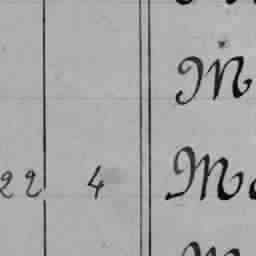 M
22 4 Ma